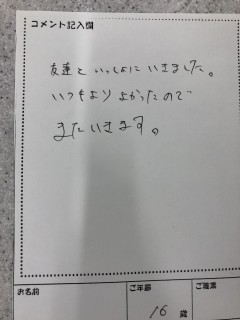 コメント記入欄
友達といっしょにいきました。
いつもよりよかったので
またいきます。
お名前
ご年齢
ご職業
16 歳